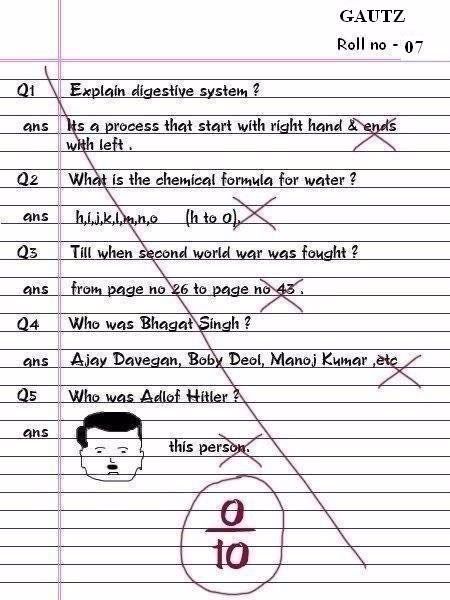 GAUTZ
Roll no - 07
Q1 Explain digestive system ?
ans Its a process that start with right hand & ends
with left .
Q2 What is the chemical formula for water ?
ans h,i,j,k,l,m,n,o (h to o).
Q3 Till when second world war was fought ?
ans from page no 26 to page no 43 .
Q4 Who was Bhagat Singh ?
ans Ajay Davegan, Boby Deol, Manoj Kumar ,etc
Q5 Who was Adlof Hitler ?
ans this person.
0
10